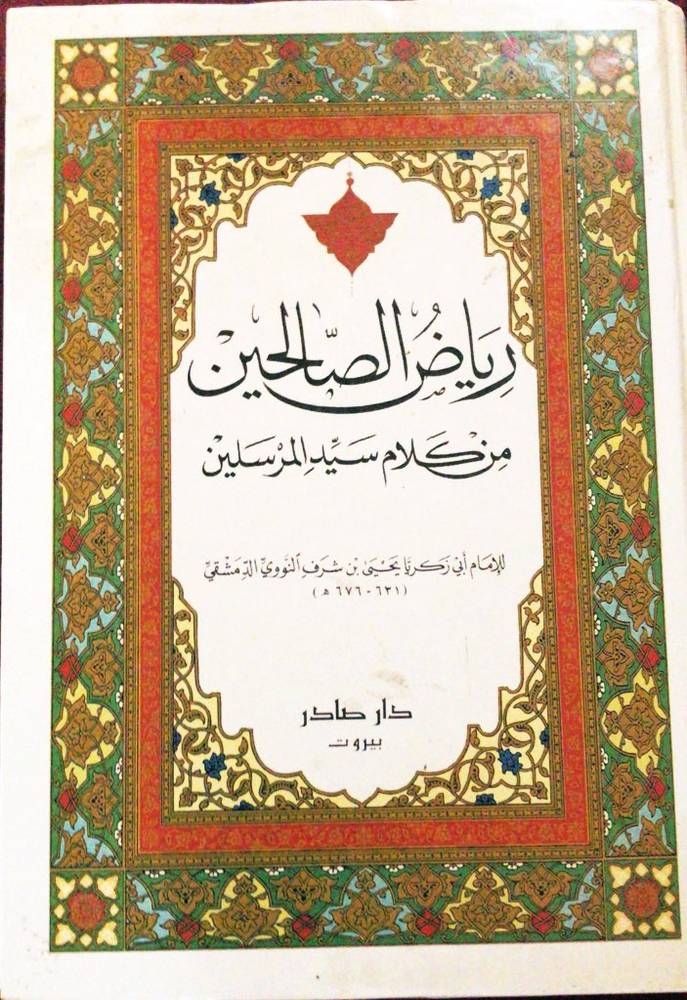 رِيَاضُ الصَّالِحِين
مِن كَلَام سَيِّدِ المُرْسَلِين
للإمام أبي زكريا يَحْيَى بن شرفِ النَّوويِّ الدِّمَشْقيِّ
(٦٣١ - ٦٧٦ ه)
دار صادر
بيروت